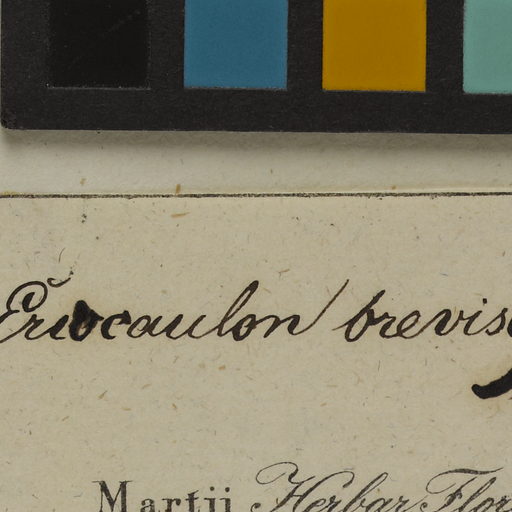 Eriocaulon brevis
Martii Herbar. Flor